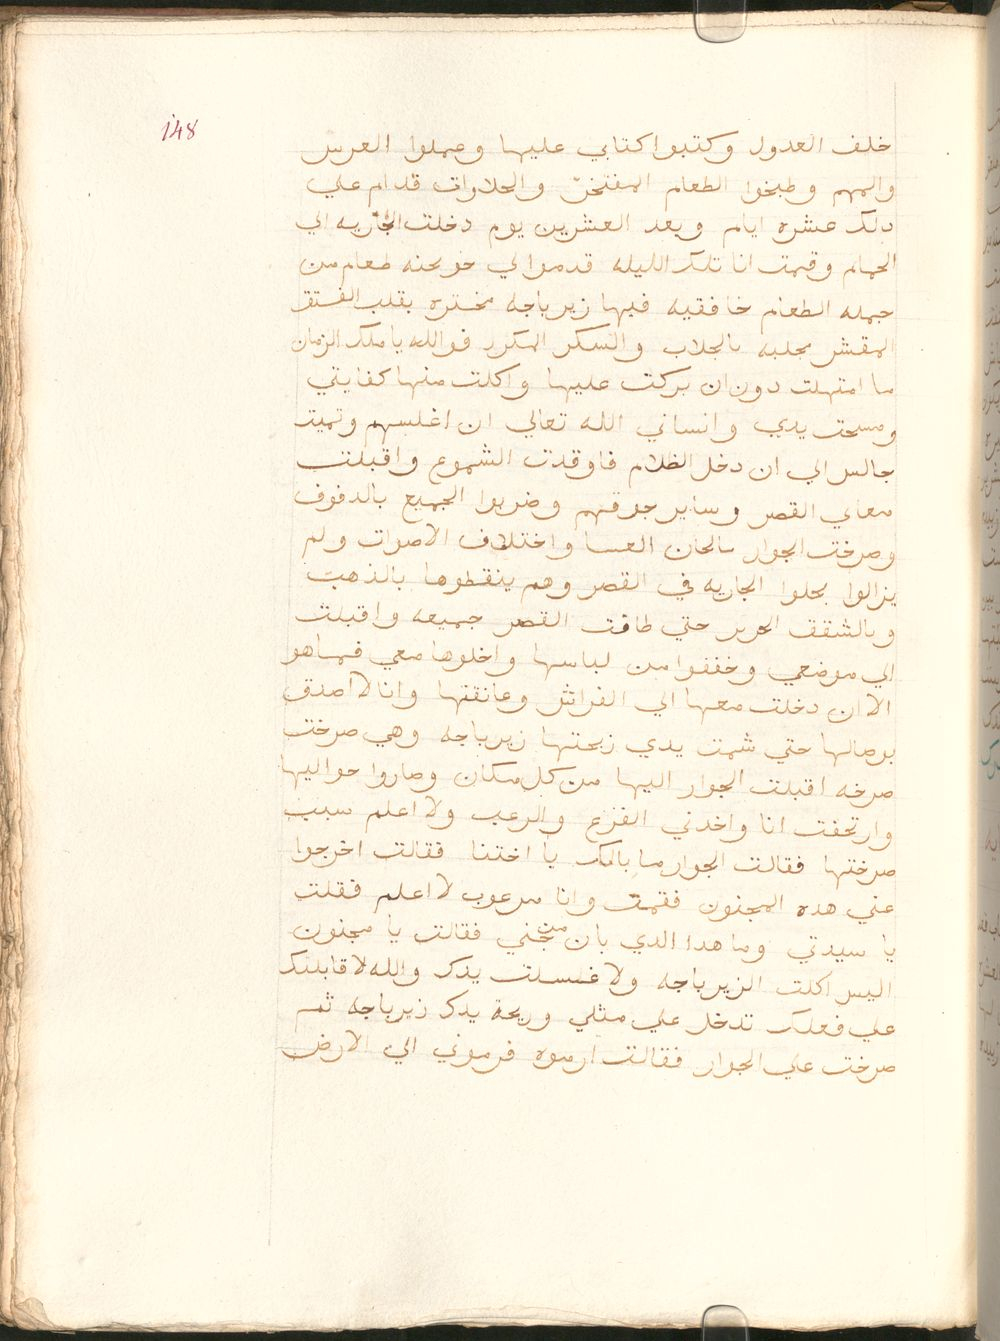 148
خلف العدول وكتبوا كتابي عليها وعملوا العرس
والمهم وطبخوا الطعام المفتخر والحلاوات قدام علي
دلك عشره ايام وبعد العشرين يوم دخلت الجاريه الي
الحمام وقمت انا تلك الليله قدموا لي خونجه طعام من
جمله الطعام خافقيه فيها زيرباجه مخثره بقلب الفستق
المقشر مجلبه بالجلاب والسكر المكرر فوالله يا ملك الزمان
ما امتهلت دون ان بركت عليها واكلت منها كفايتي
ومسحت يدي وانساني الله تعالي ان اغلسهم وتميت
جالس الي ان دخل الظلام فاوقدت الشموع واقبلت
مغاني القصر وساير جوقتهم وضربوا الجميع بالدفوف
وصرخت الجوار بالحان واختلاف الاصوات ولم
يزالوا بجلوا الجاريه في القصر وهم ينقطوها بالذهب
وبالشقق الحرير حتي طافت القصر جميعه واقبلت
الي موضعي وخففوا من لباسها واخلوها معي فما هو
الا ان دخلت معها الي الفراش وعانقتها وانا لا اصدق
بوصالها حتي شمت يدي زيرباجه وهي صرخت
صرخه اقبلت الجوار اليها من كل مكان وصاروا حواليها
وارتجفت انا واخدني الفزع والرعب ولا اعلم سبب
صرختها فقالت الجوار ما بالك يا اختنا فقالت اخرجوا
عني هده المجنون فقمت وانا مرعوب لا اعلم فقلت
يا سيدتي وما هدا الدي بان من جنني فقالت يا مجنون
اليس اكلت الزيرباجه ولا غسلت يدك والله لا قابلنك
علي فعلك تدخل علي مثلي وريحة يدك زيرباجه ثم
صرخت علي الجوار فقالت ارموه فرموني الي الارض